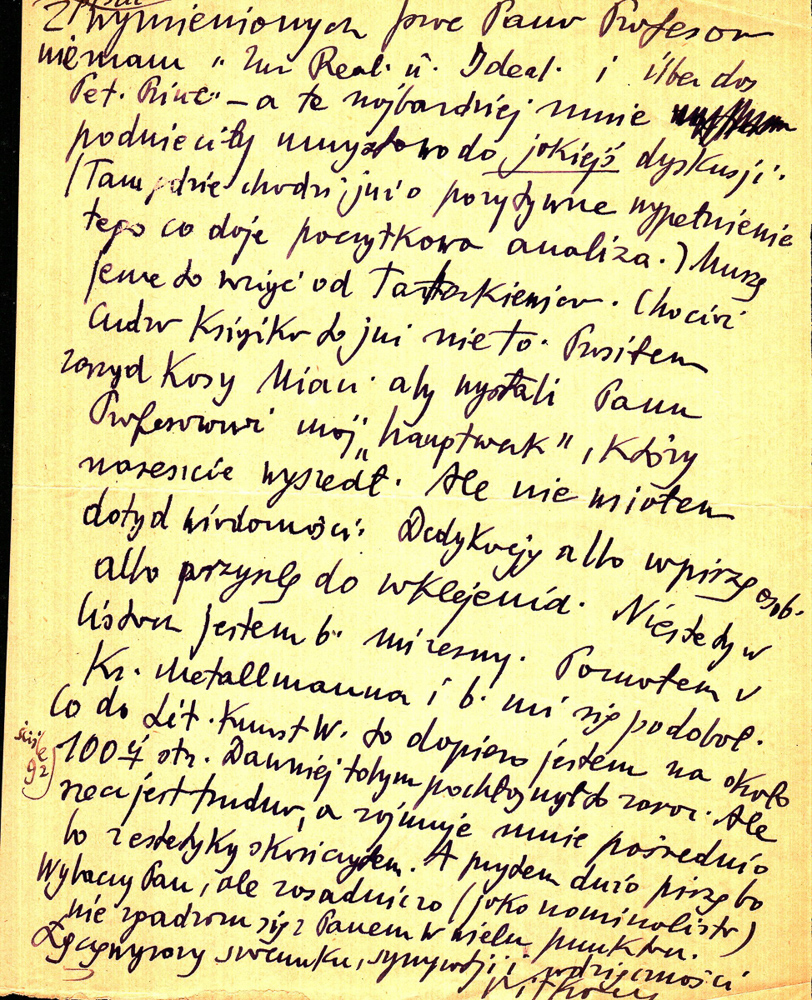 Z wymienionych prac Pana Profesora
nie mam „Zur Real. u. Ideal. i Über das
Pet. Princ" – a te najbardziej mnie
podnieciły umysłowo do jakiejś dyskusji.
(Tam gdzie chodzi już o pozytywne wypełnienie
tego co daje początkowa analiza.) Muszę
jeszcze to wziąć od Tatarkiewicza. (Chociaż
cudza książka to już nie to. Prosiłem
zarząd Kasy Mian. aby wysłali Panu
Profesorowi mój „hauptwerk", który
nareszcie wyszedł. Ale nie miałem
dotąd wiadomości. Dedykację albo wpiszę osob.
albo przyszlę do wklejenia. Niestety w
listach jestem b. mierny. Poznałem w
Kr. Metallmanna i b. mi się podobał.
Co do Lit. Kunst W. to dopiero jestem na około
ściśle 92
100ej str. Dawniej tobym pochłonął to zaraz. Ale
rzecz jest trudna, a zajmuje mnie pośrednio
bo z estetyką skończyłem. A przytem dużo piszę bo
Wybaczy Pan, ale zasadniczo (jako nominalista)
nie zgadzam się z Panem w wielu punktach.
Łączę wyrazy szacunku, sympatji i wdzięczności
Witkacy